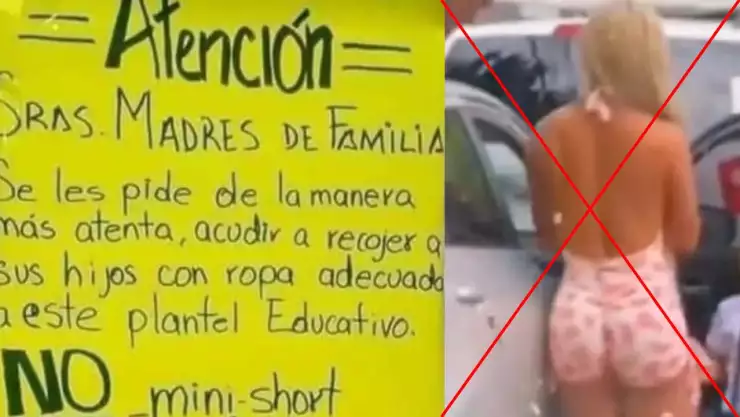 = Atención =
SRAS. MADRES DE FAMILIA
Se les pide de la manera
más atenta, acudir a recojer a
sus hijos con ropa adecuada
a este plantel Educativo.
NO - mini-short